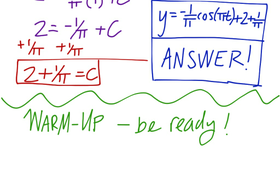 2 = -1/π + C
+1/π +1/π
2 + 1/π = C
y = -1/π cos(πt) + 2 + 1/π
ANSWER!
WARM-UP – be ready!